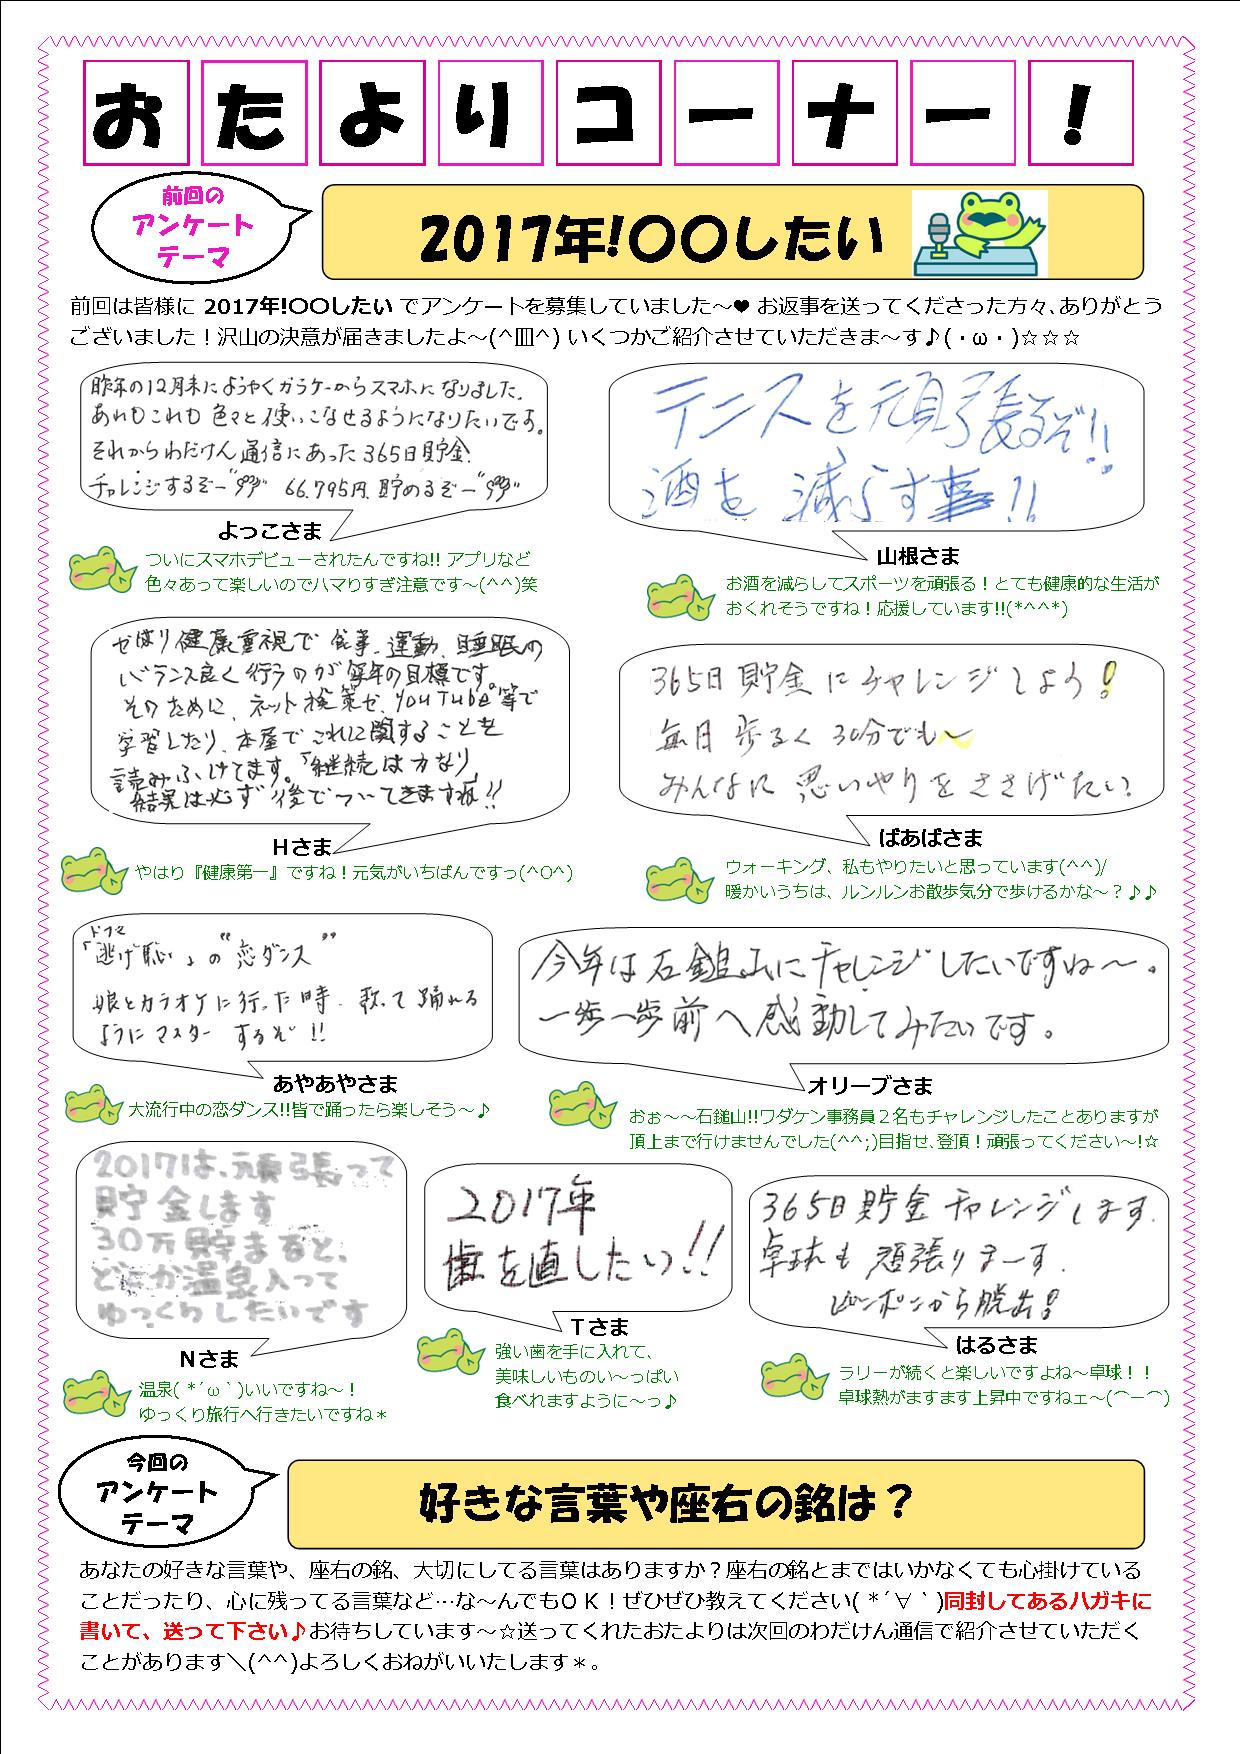 おたよりコーナー！
前回の
アンケート
テーマ
2017年!〇〇したい
前回は皆様に 2017年!〇〇したい でアンケートを募集していました～♥ お返事を送ってくださった方々、ありがとう
ございました！沢山の決意が届きましたよ～(^皿^) いくつかご紹介させていただきま～す♪(・ω・)☆☆☆
昨年の12月末にようやくガラケーからスマホになりました。
あれもこれも色々と使いこなせるようになりたいです。
それからわだけん通信にあった365日貯金
チャレンジするぞー 66.795円 貯めるぞー
よっこさま
ついにスマホデビューされたんですね!! アプリなど
色々あって楽しいのでハマりすぎ注意です～(^^)笑
テニスを頑張るぞ!!
酒を減らす事!!
山根さま
お酒を減らしてスポーツを頑張る！とても健康的な生活が
おくれそうですね！応援しています!!(*^^*)
やはり健康重視で食事、運動、睡眠の
バランス良く行うのが毎年の目標です。
そのために、ネット検索や、YouTube等で
学習したり、本屋でこれに関することを
読みふけてます。「継続は力なり」
結果は必ず後でついてきますね!!
Hさま
やはり『健康第一』ですね！元気がいちばんですっ(^O^)
365日貯金にチャレンジしよう！
毎日歩るく 30分でも～
みんなに思いやりをささげたい
ばあばさま
ウォーキング、私もやりたいと思っています(^^)/
暖かいうちは、ルンルンお散歩気分で歩けるかな～？♪♪
ドラマ
「逃げ恥」の“恋ダンス”
娘とカラオケに行った時、歌って踊れる
ようにマスターするぞ!!
あやあやさま
大流行中の恋ダンス!!皆で踊ったら楽しそう～♪
今年は石鎚山にチャレンジしたいですね～。
一歩一歩前へ感動してみたいです。
オリーブさま
おぉ～～石鎚山!!ワダケン事務員２名もチャレンジしたことありますが
頂上まで行けませんでした(^^;)目指せ、登頂！頑張ってください～!☆
2017は、頑張って
貯金します
30万貯まると、
どこか温泉入って
ゆっくりしたいです
Nさま
温泉( *´ω｀)いいですね～！
ゆっくり旅行へ行きたいですね＊
2017年
歯を直したい!!
Tさま
強い歯を手に入れて、
美味しいものい～っぱい
食べれますように～っ♪
365日貯金チャレンジします。
卓球も頑張りまーす。
ピンポンから脱出!
はるさま
ラリーが続くと楽しいですよね～卓球！！
卓球熱がますます上昇中ですねェ～(⌒ー⌒)
今回の
アンケート
テーマ
好きな言葉や座右の銘は？
あなたの好きな言葉や、座右の銘、大切にしてる言葉はありますか？座右の銘とまではいかなくても心掛けている
ことだったり、心に残ってる言葉など…な～んでもＯＫ！ぜひぜひ教えてください( *´∀｀)同封してあるハガキに
書いて、送って下さい♪お待ちしています～☆送ってくれたおたよりは次回のわだけん通信で紹介させていただく
ことがあります＼(^^)よろしくおねがいいたします＊。